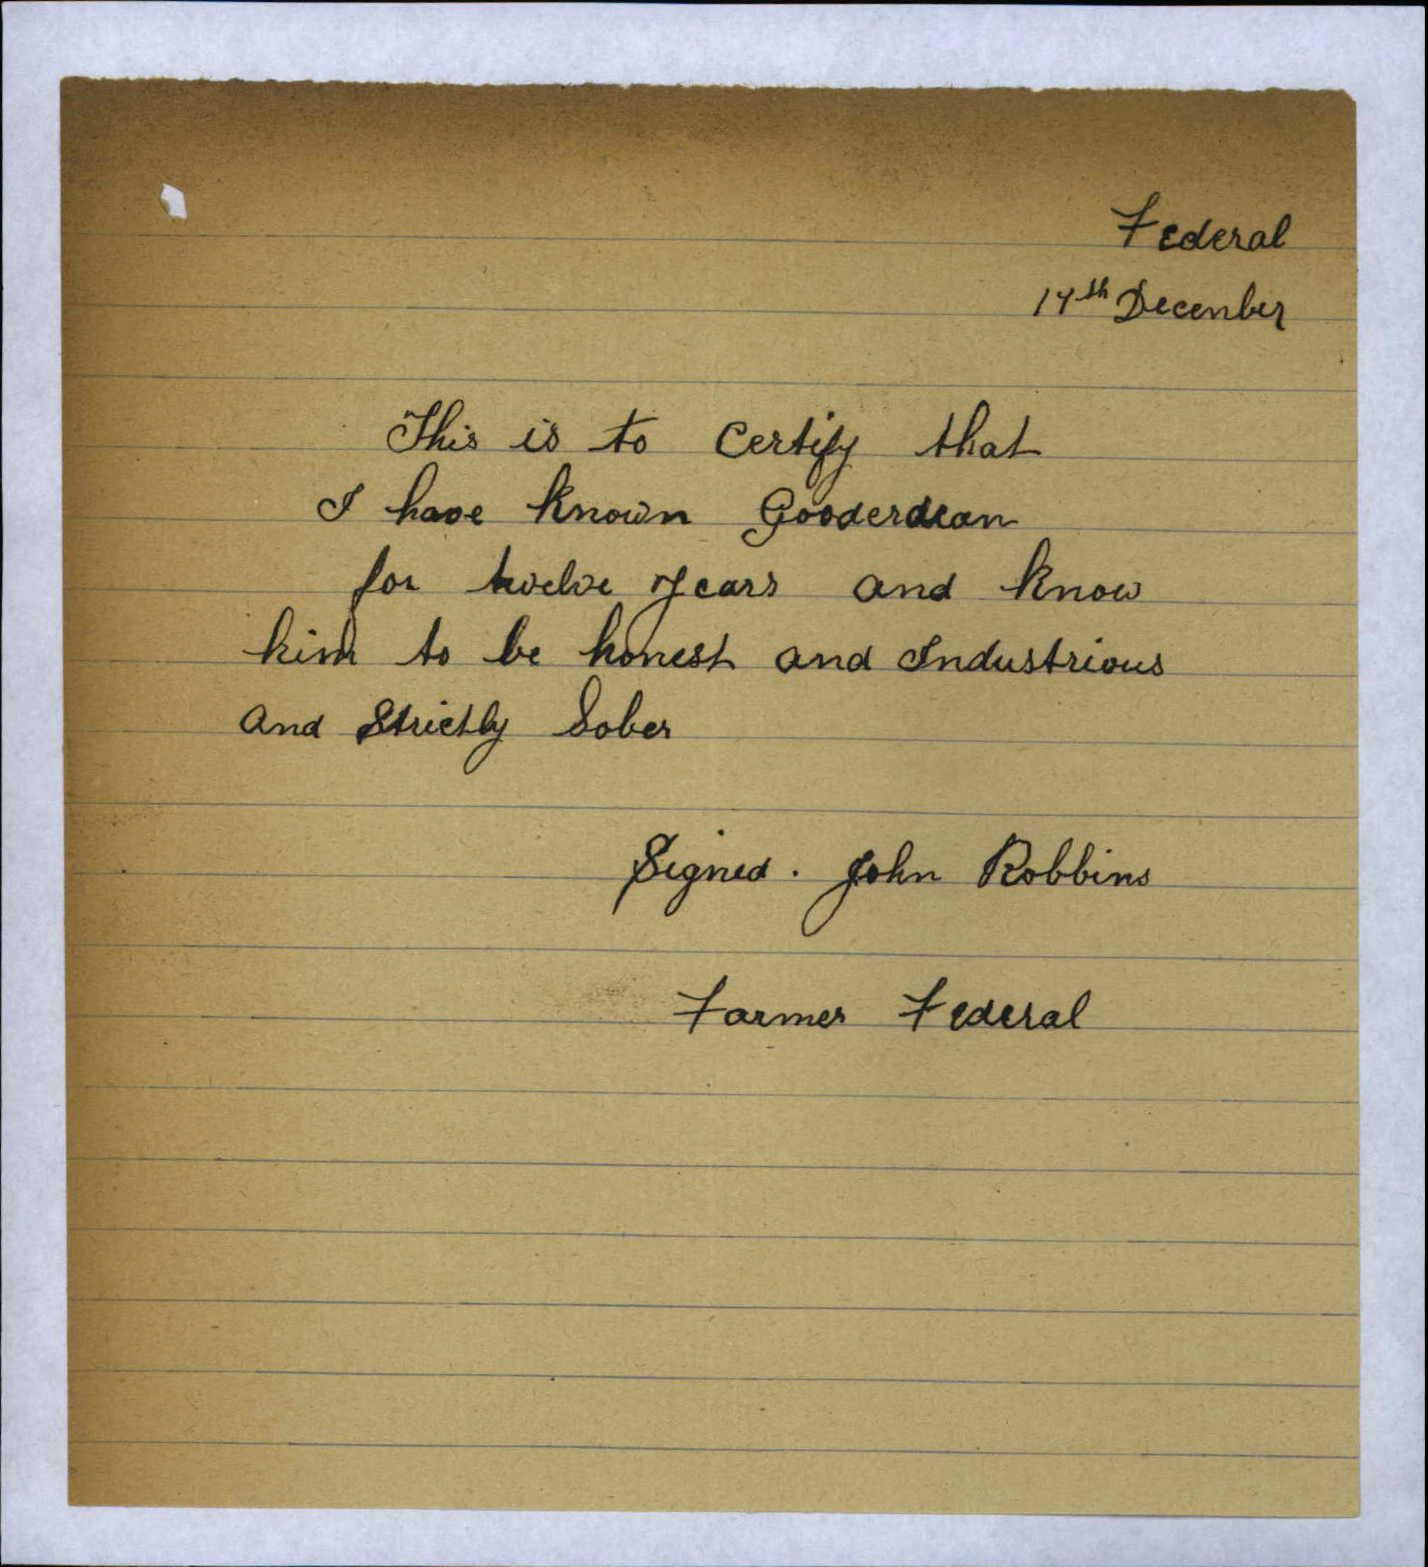 Federal
14th December
This is to Certify that
I have known Gooderdean
for twelve years and know
him to be honest and Industrious
and Strictly Sober
Signed. John Robbins
Farmer Federal